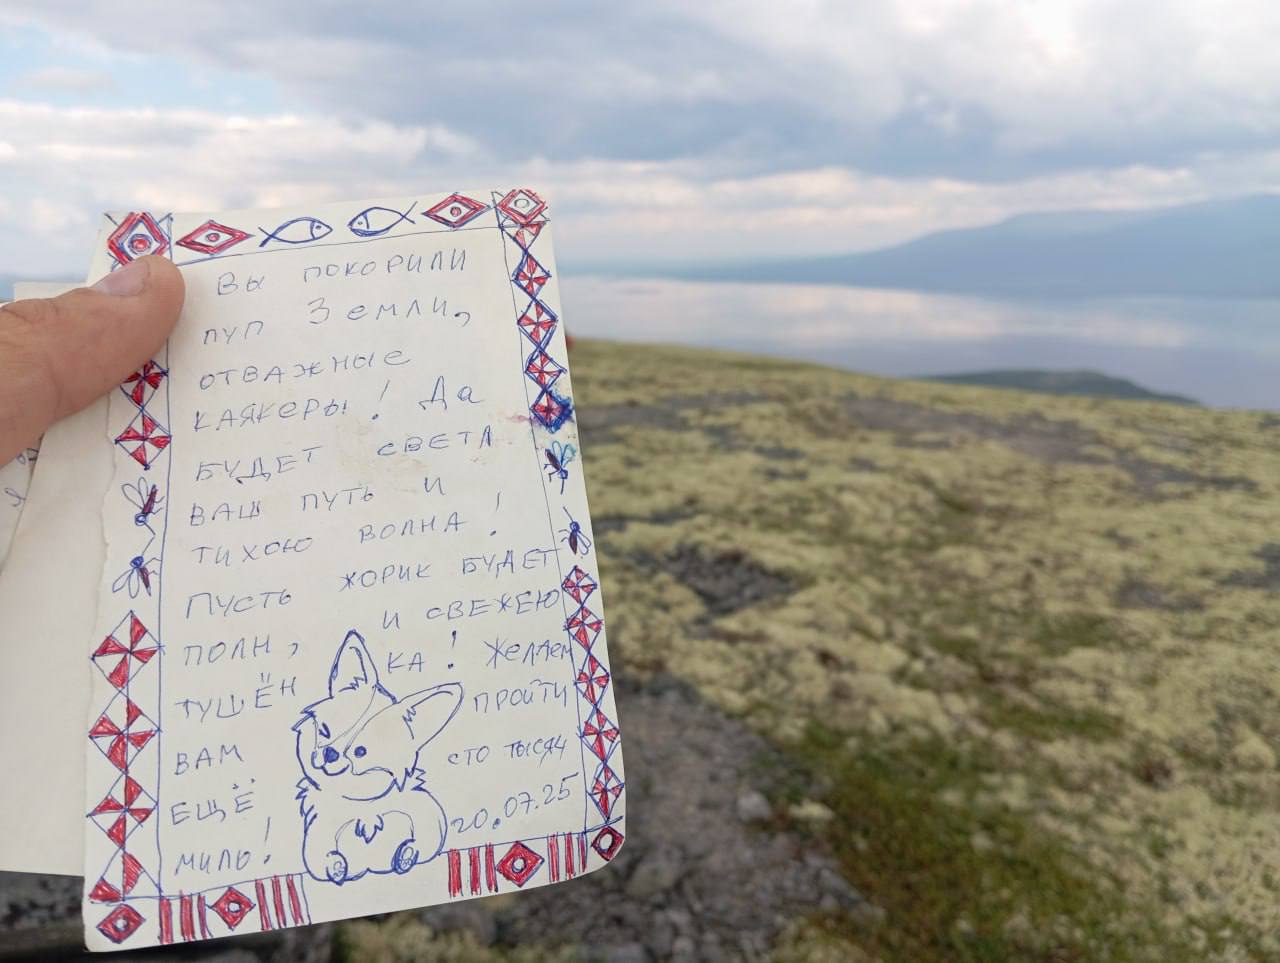 Вы покорили
пуп Земли,
отважные
каякеры! Да
будет светл
ваш путь и
тихою волна!
Пусть жорик будет
полн, и свежею
тушёнка! Желаем
вам пройти
ещё сто тысяч
миль! 20.07.25